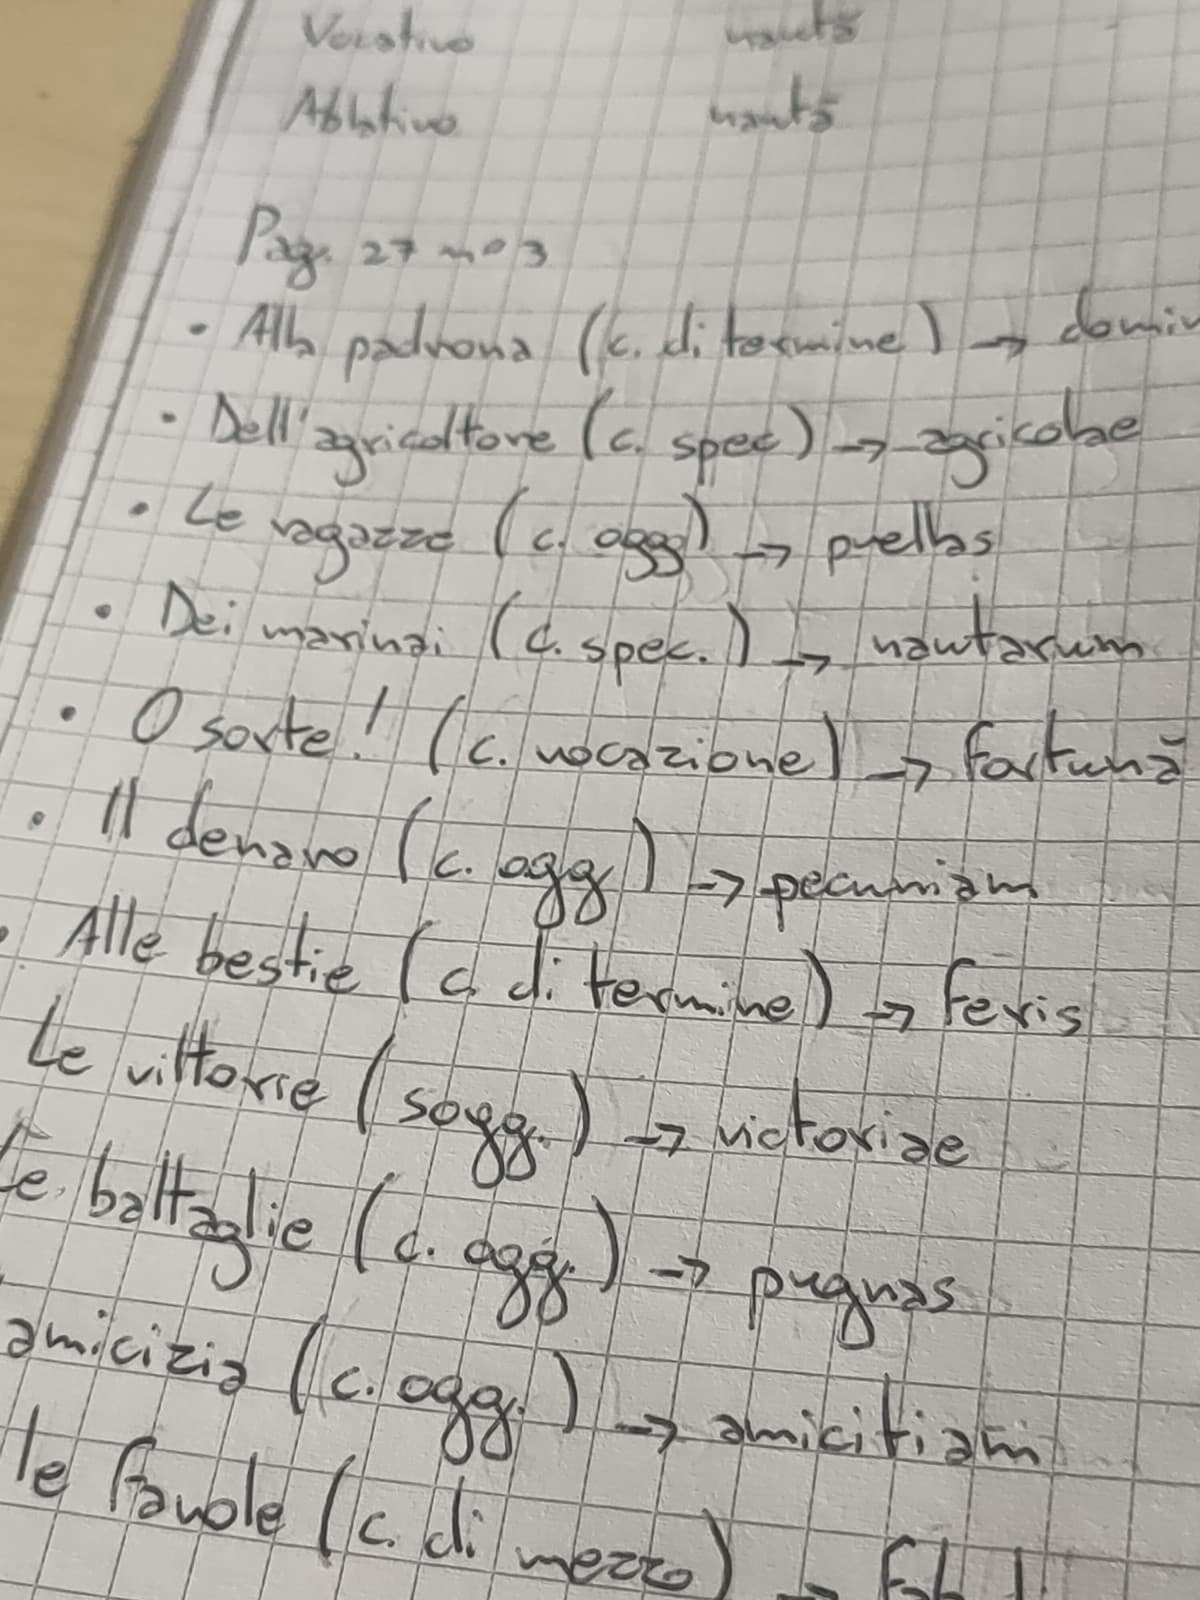 Vocativo naută
Ablativo nautā
Pag. 27 n° 3
• Alla padrona (c. di termine) → domin
• Dell'agricoltore (c. spec) → agricolae
• Le ragazze (c. ogg) → puellas
• Dei marinai (c. spec.) → nautarum
• O sorte! (c. vocazione) → fortună
• Il denaro (c. ogg) → pecuniam
• Alle bestie (c. di termine) → feris
Le vittorie (sogg.) → victoriae
Le battaglie (c. ogg.) → pugnas
amicizia (c. ogg.) → amicitiam
le favole (c. di mezzo) →